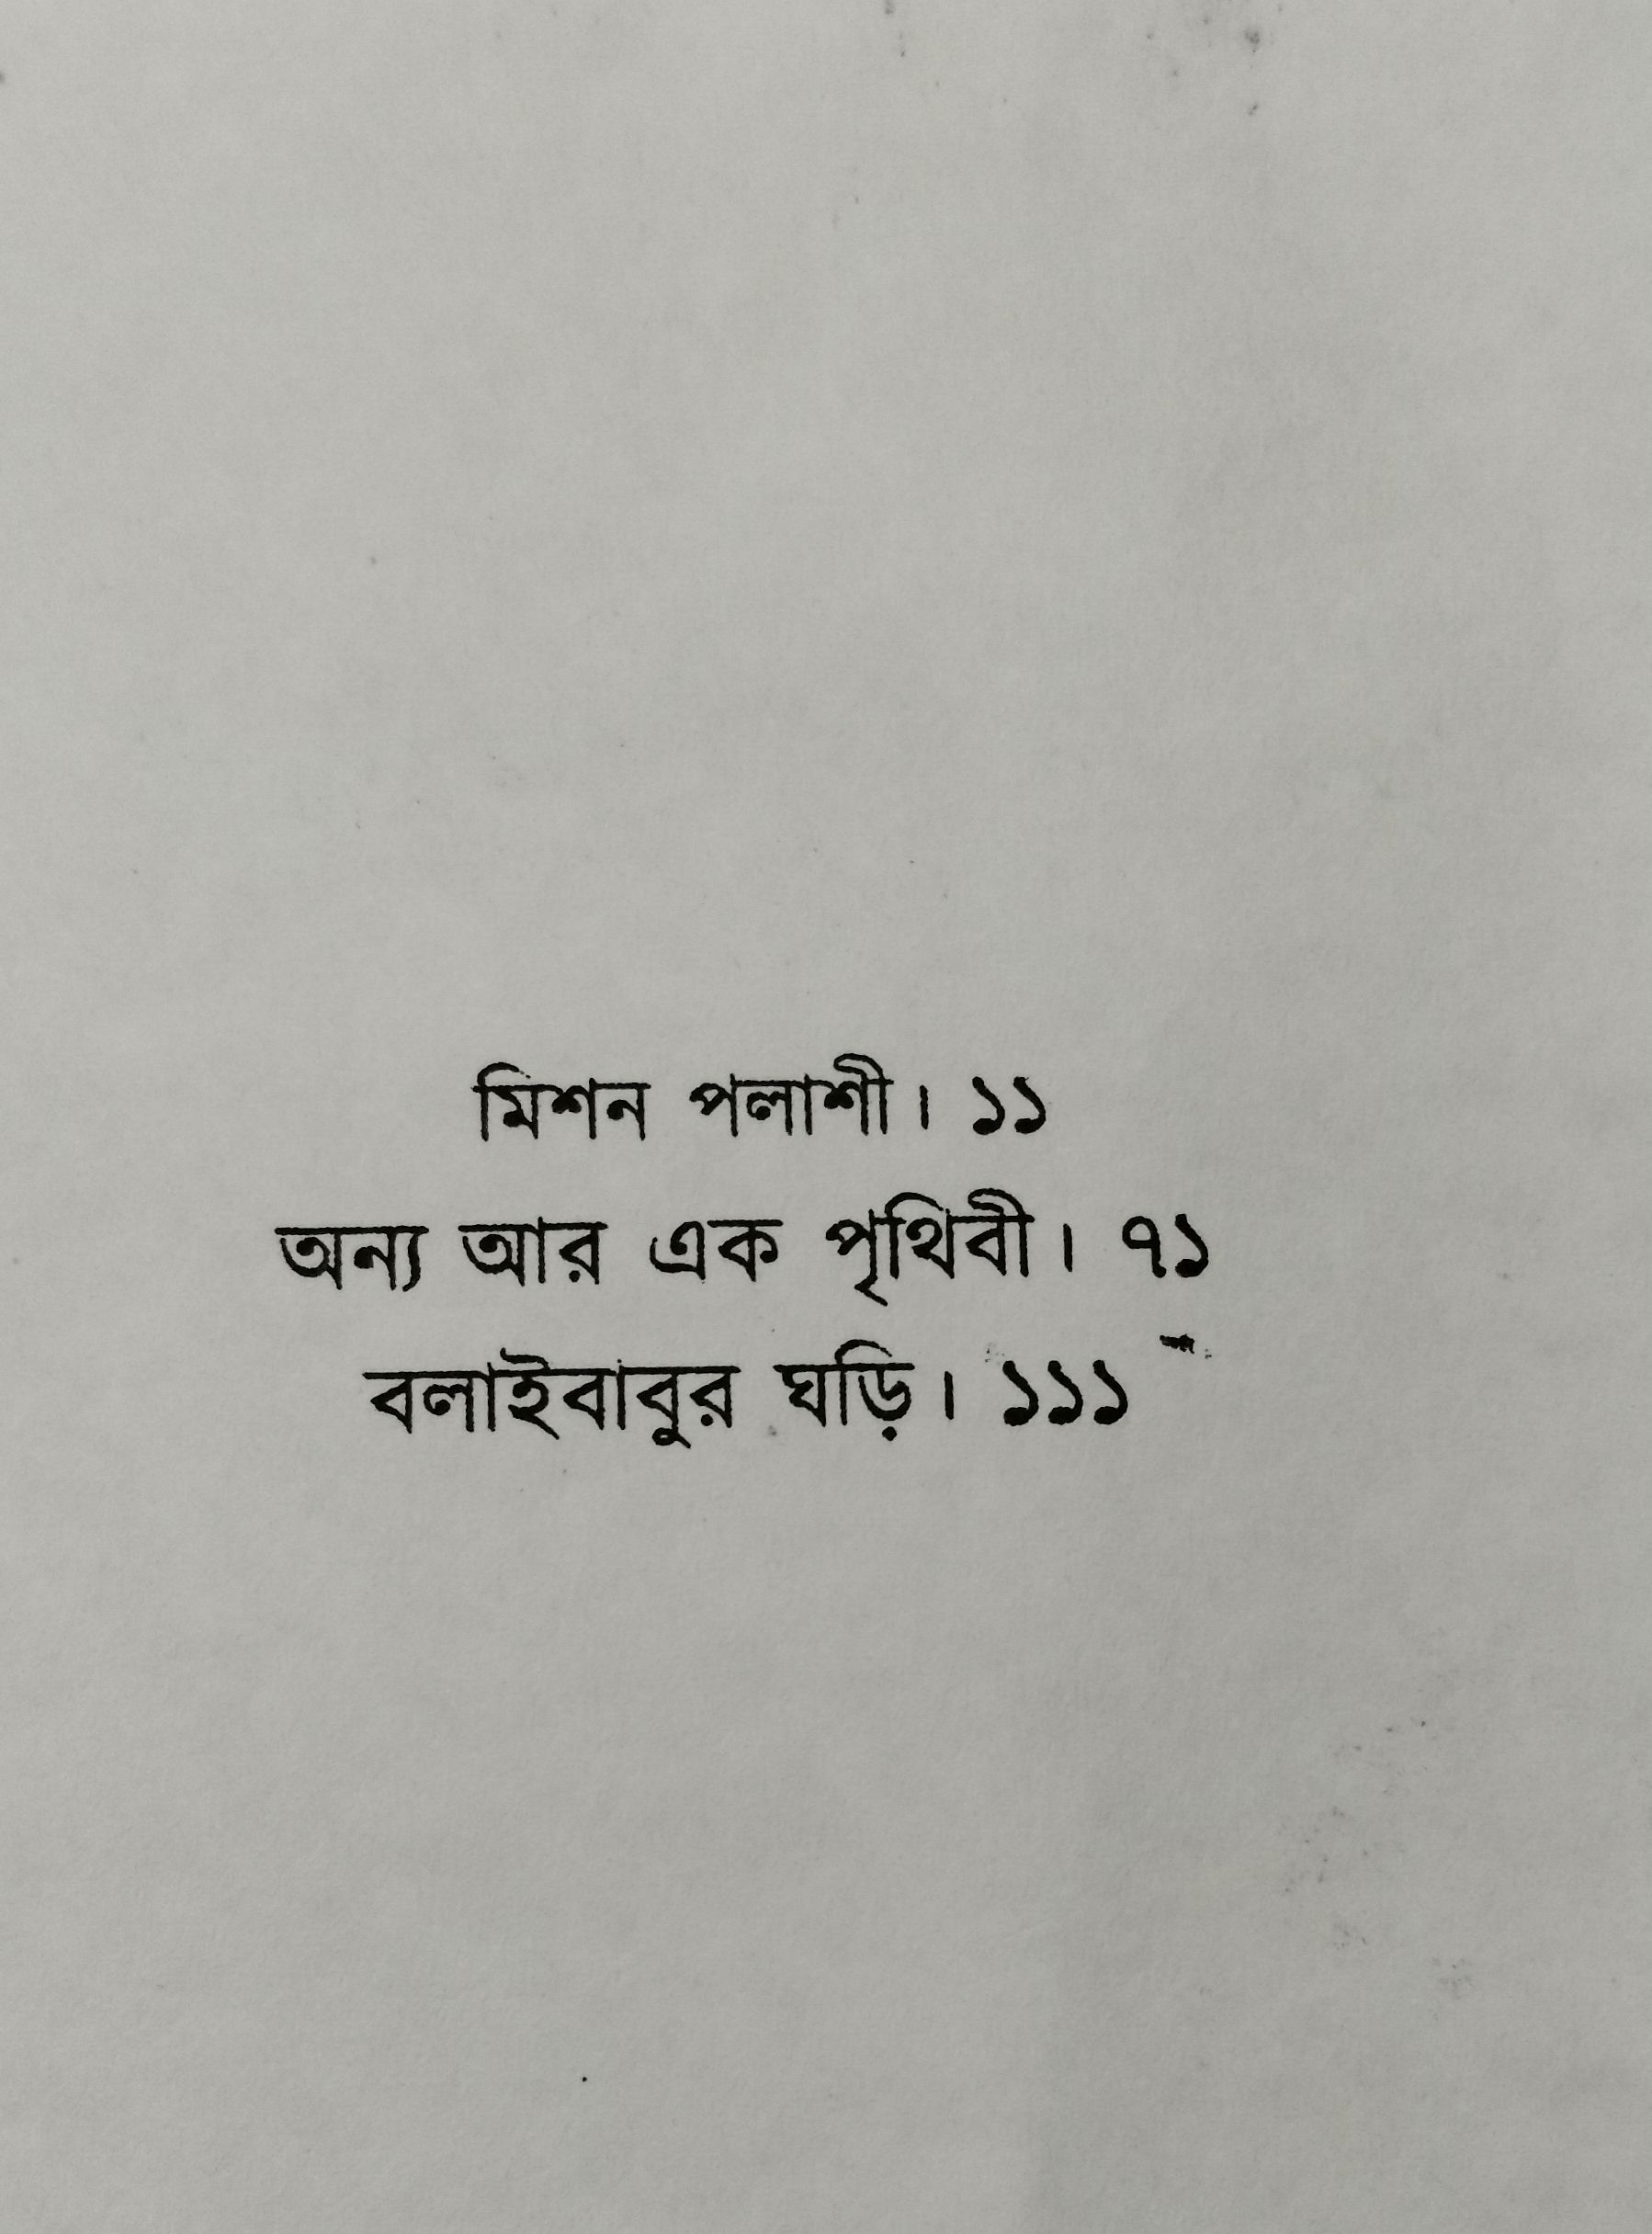 মিশন পলাশী। ১১
অন্য আর এক পৃথিবী। ৭১
বলাইবাবুর ঘড়ি। ১১১